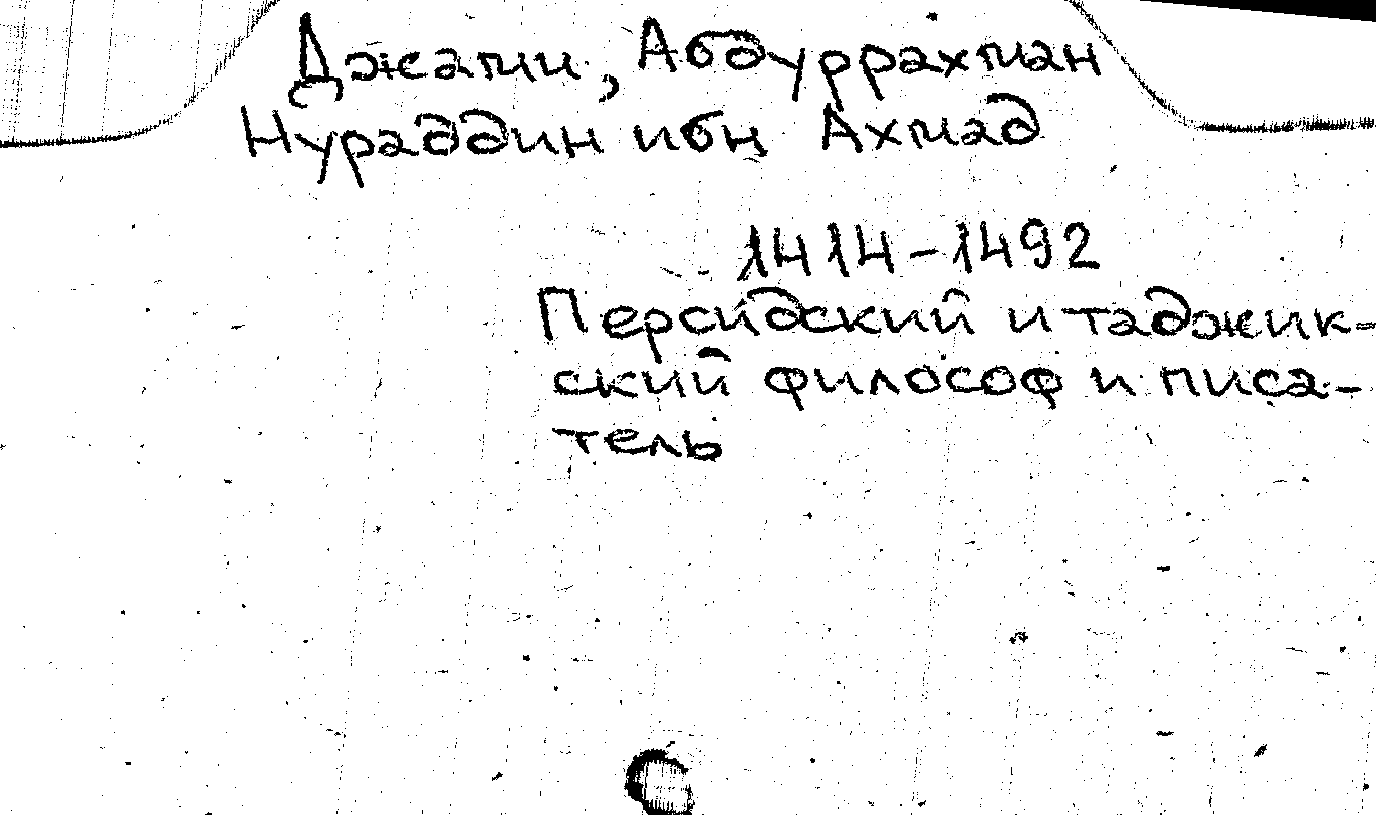 Джами, Абдуррахман
Нураддин ибн Ахмад
1414-1492
Персидский и таджик-
ский философ и писа-
тель